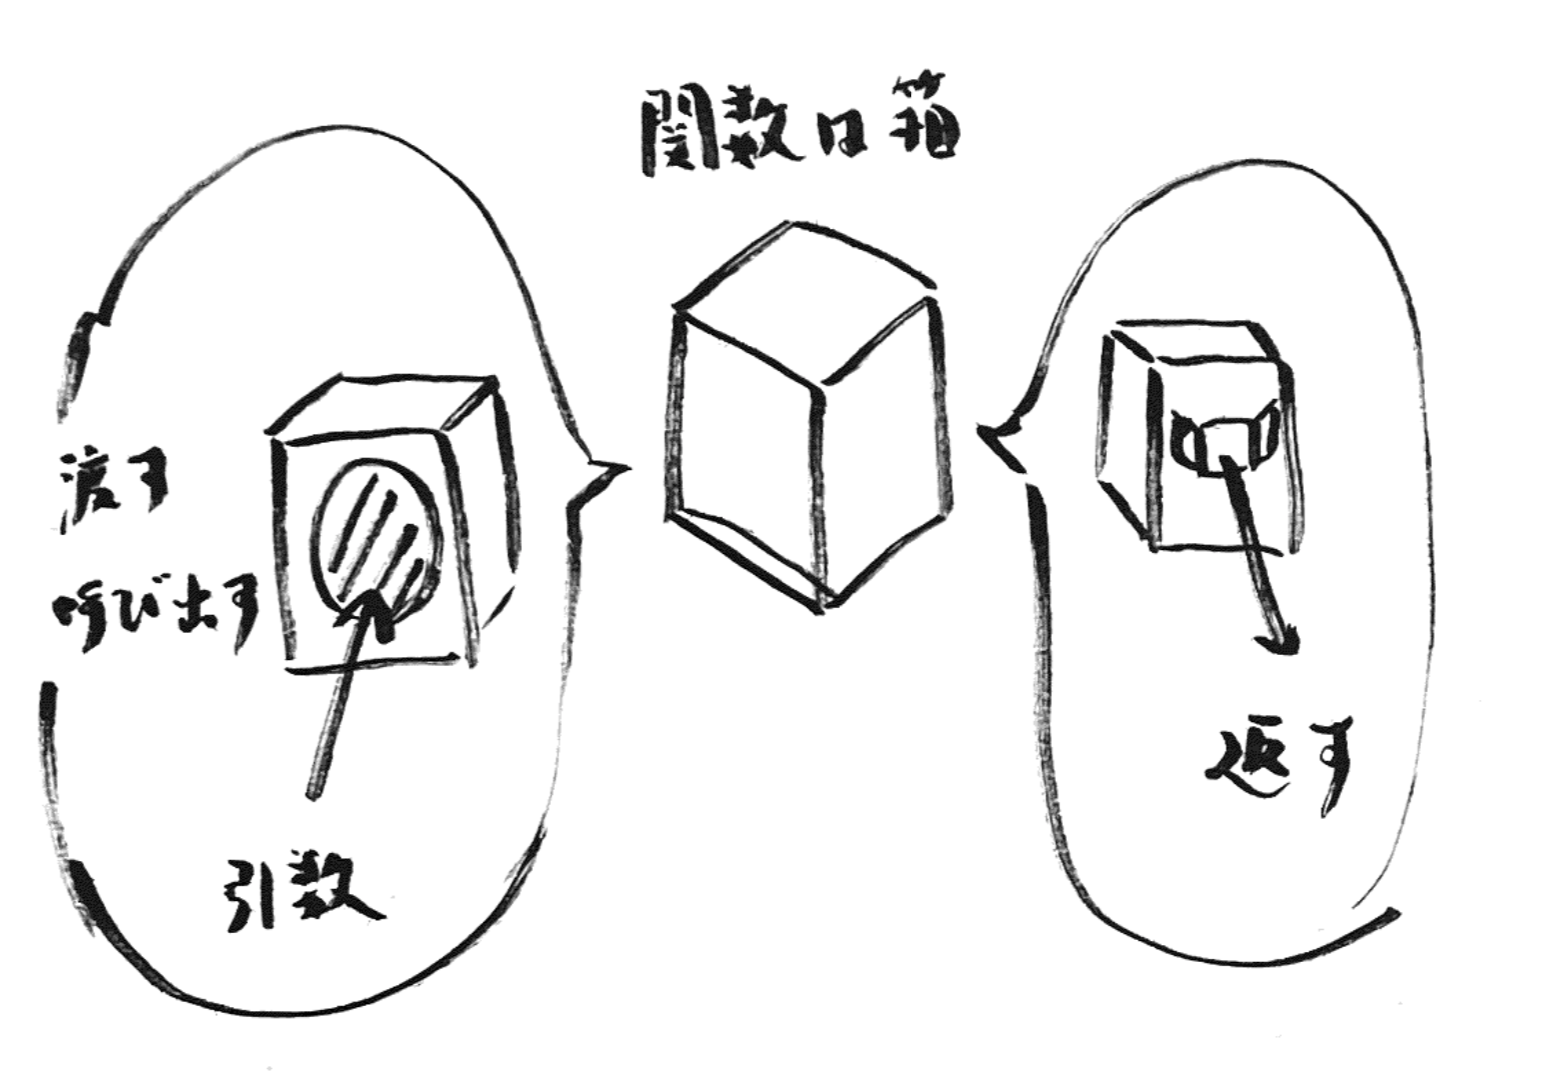 関数は箱
渡す
呼び出す
引数
返す